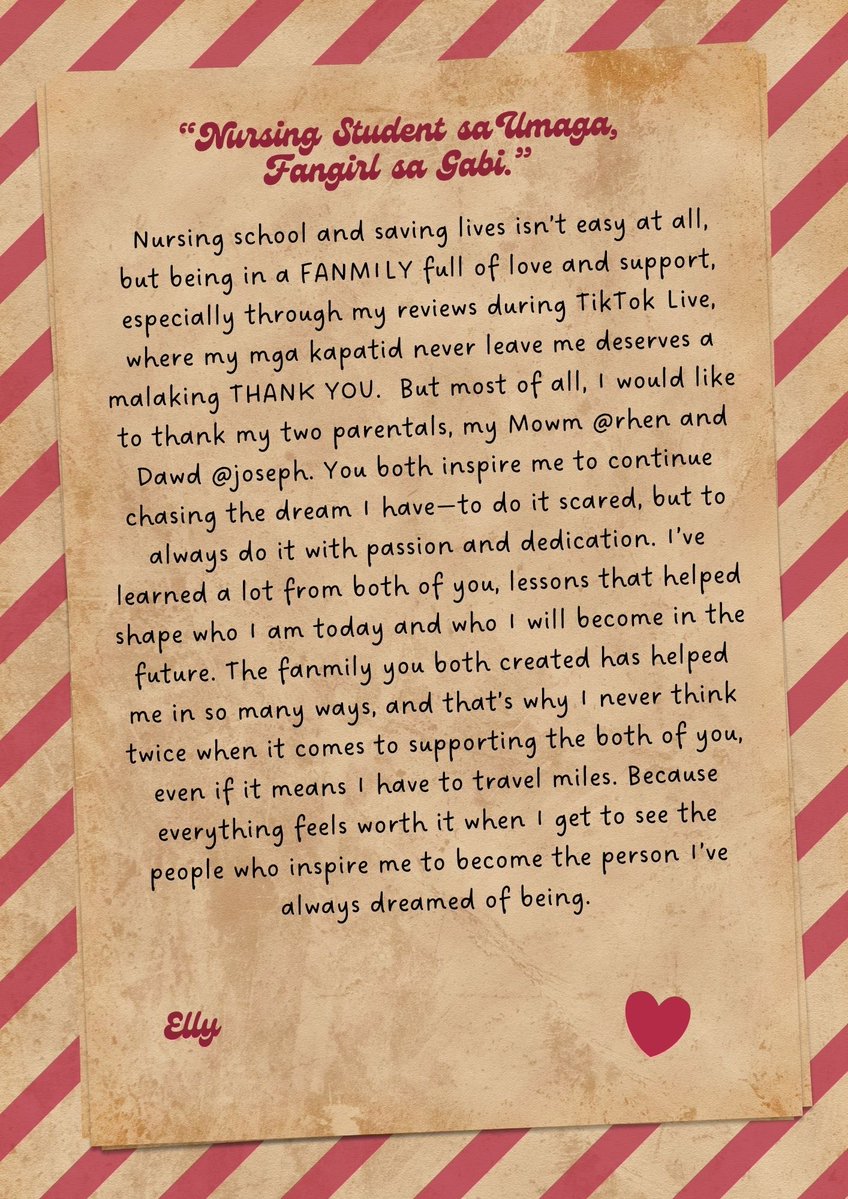 “Nursing Student sa Umaga,
Fangirl sa Gabi.”
Nursing school and saving lives isn't easy at all,
but being in a FANMILY full of love and support,
especially through my reviews during TikTok Live,
where my mga kapatid never leave me deserves a
malaking THANK YOU. But most of all, I would like
to thank my two parentals, my Mowm @rhen and
Dawd @joseph. You both inspire me to continue
chasing the dream I have—to do it scared, but to
always do it with passion and dedication. I've
learned a lot from both of you, lessons that helped
shape who I am today and who I will become in the
future. The fanmily you both created has helped
me in so many ways, and that's why I never think
twice when it comes to supporting the both of you,
even if it means I have to travel miles. Because
everything feels worth it when I get to see the
people who inspire me to become the person I've
always dreamed of being.
Elly